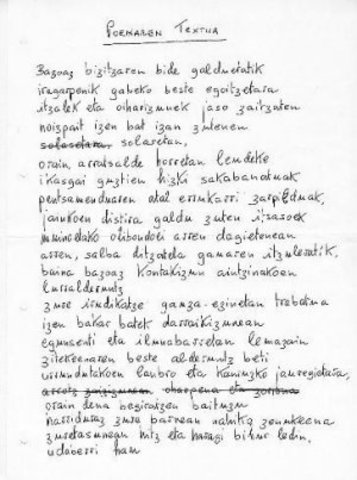 POEMAREN TEXTUA
Bazoaz bizitzaren bide galduetatik
iragarpenik gabeko beste egoitzetara
itzalek eta oihartzunek jaso zaitzaten
noizpait izen bat izan zutenen
solasetan,
orain arratsalde horretan lendeke
ikasgai guztien hizki sakabanatuak
pentsamenduaren atal errukarri
jainkoen distira galdu zuten itsasoek
arren dagietenean
arren, salba ditzatela gauaren itzuleratik,
baina bazoaz kontakizun aintzinakoen
lurralderuntz
zure irudikatze gauza-ezinetan trebatua
izen bakar batek darraikizunean
egunsenti eta ilunabarretan lemazain
zitekeenaren beste alderuntz beti
urrundutakoen lanbro eta kanizko jauregietara,
orain dena begiratzen baituzu
harriduraz zure barnean
zuretasunean hitz eta haragi bihur ledin,
udaberri hau